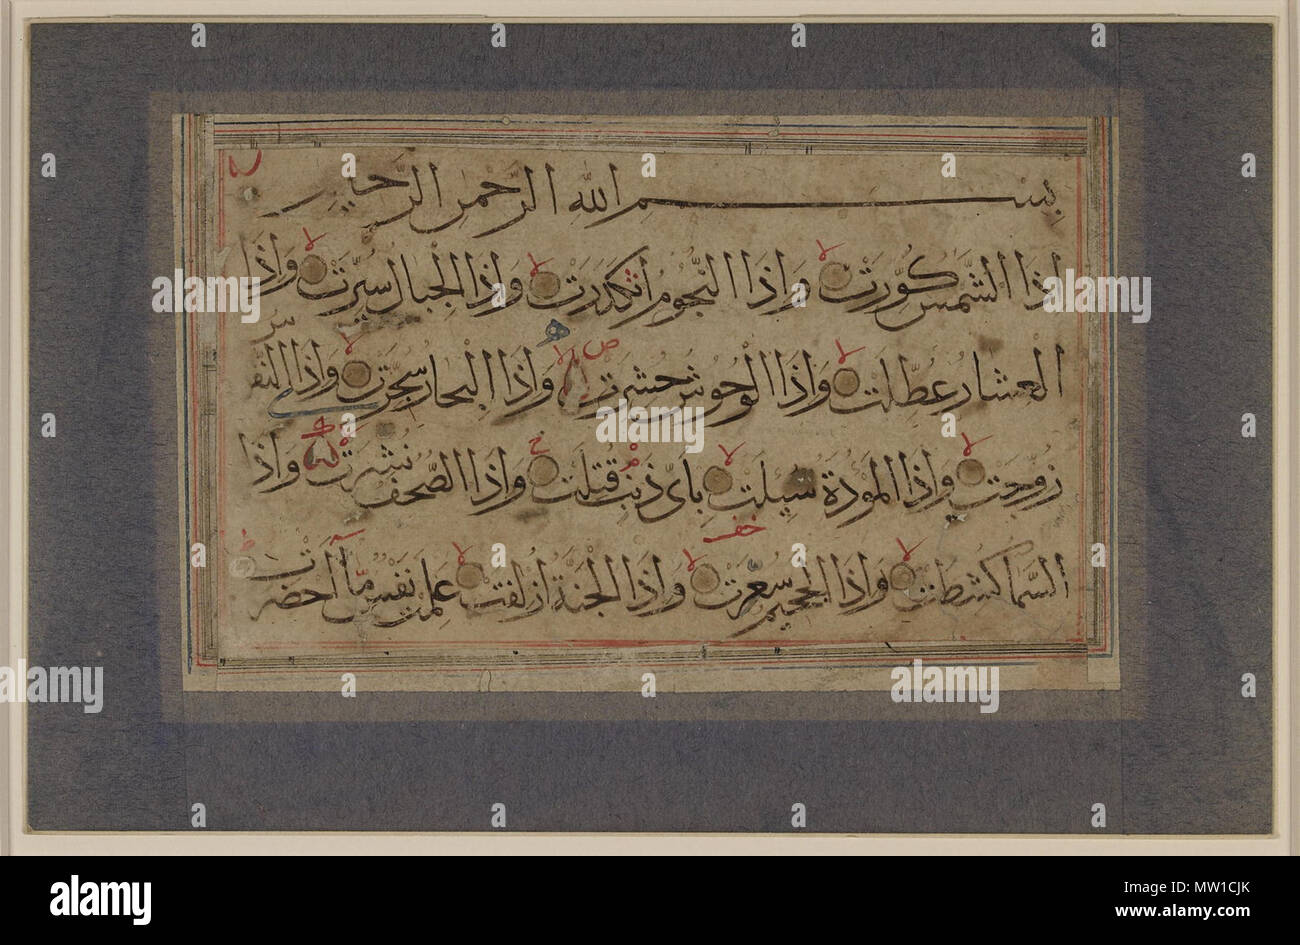 بسم الله الرحمن الرحيم
اذا الشمس كورت واذا النجوم انكدرت واذا الجبال سيرت واذا
العشار عطلت واذا الوحوش حشرت واذا البحار سجرت واذا النفوس
زوجت واذا الموءدة سيلت باى ذنب قتلت واذا الصحف نشرت واذا
السما كشطت واذا الجحيم سعرت واذا الجنة ازلفت علمت نفس ما احضرت
alamy
Image ID: MW1CJK
www.alamy.com